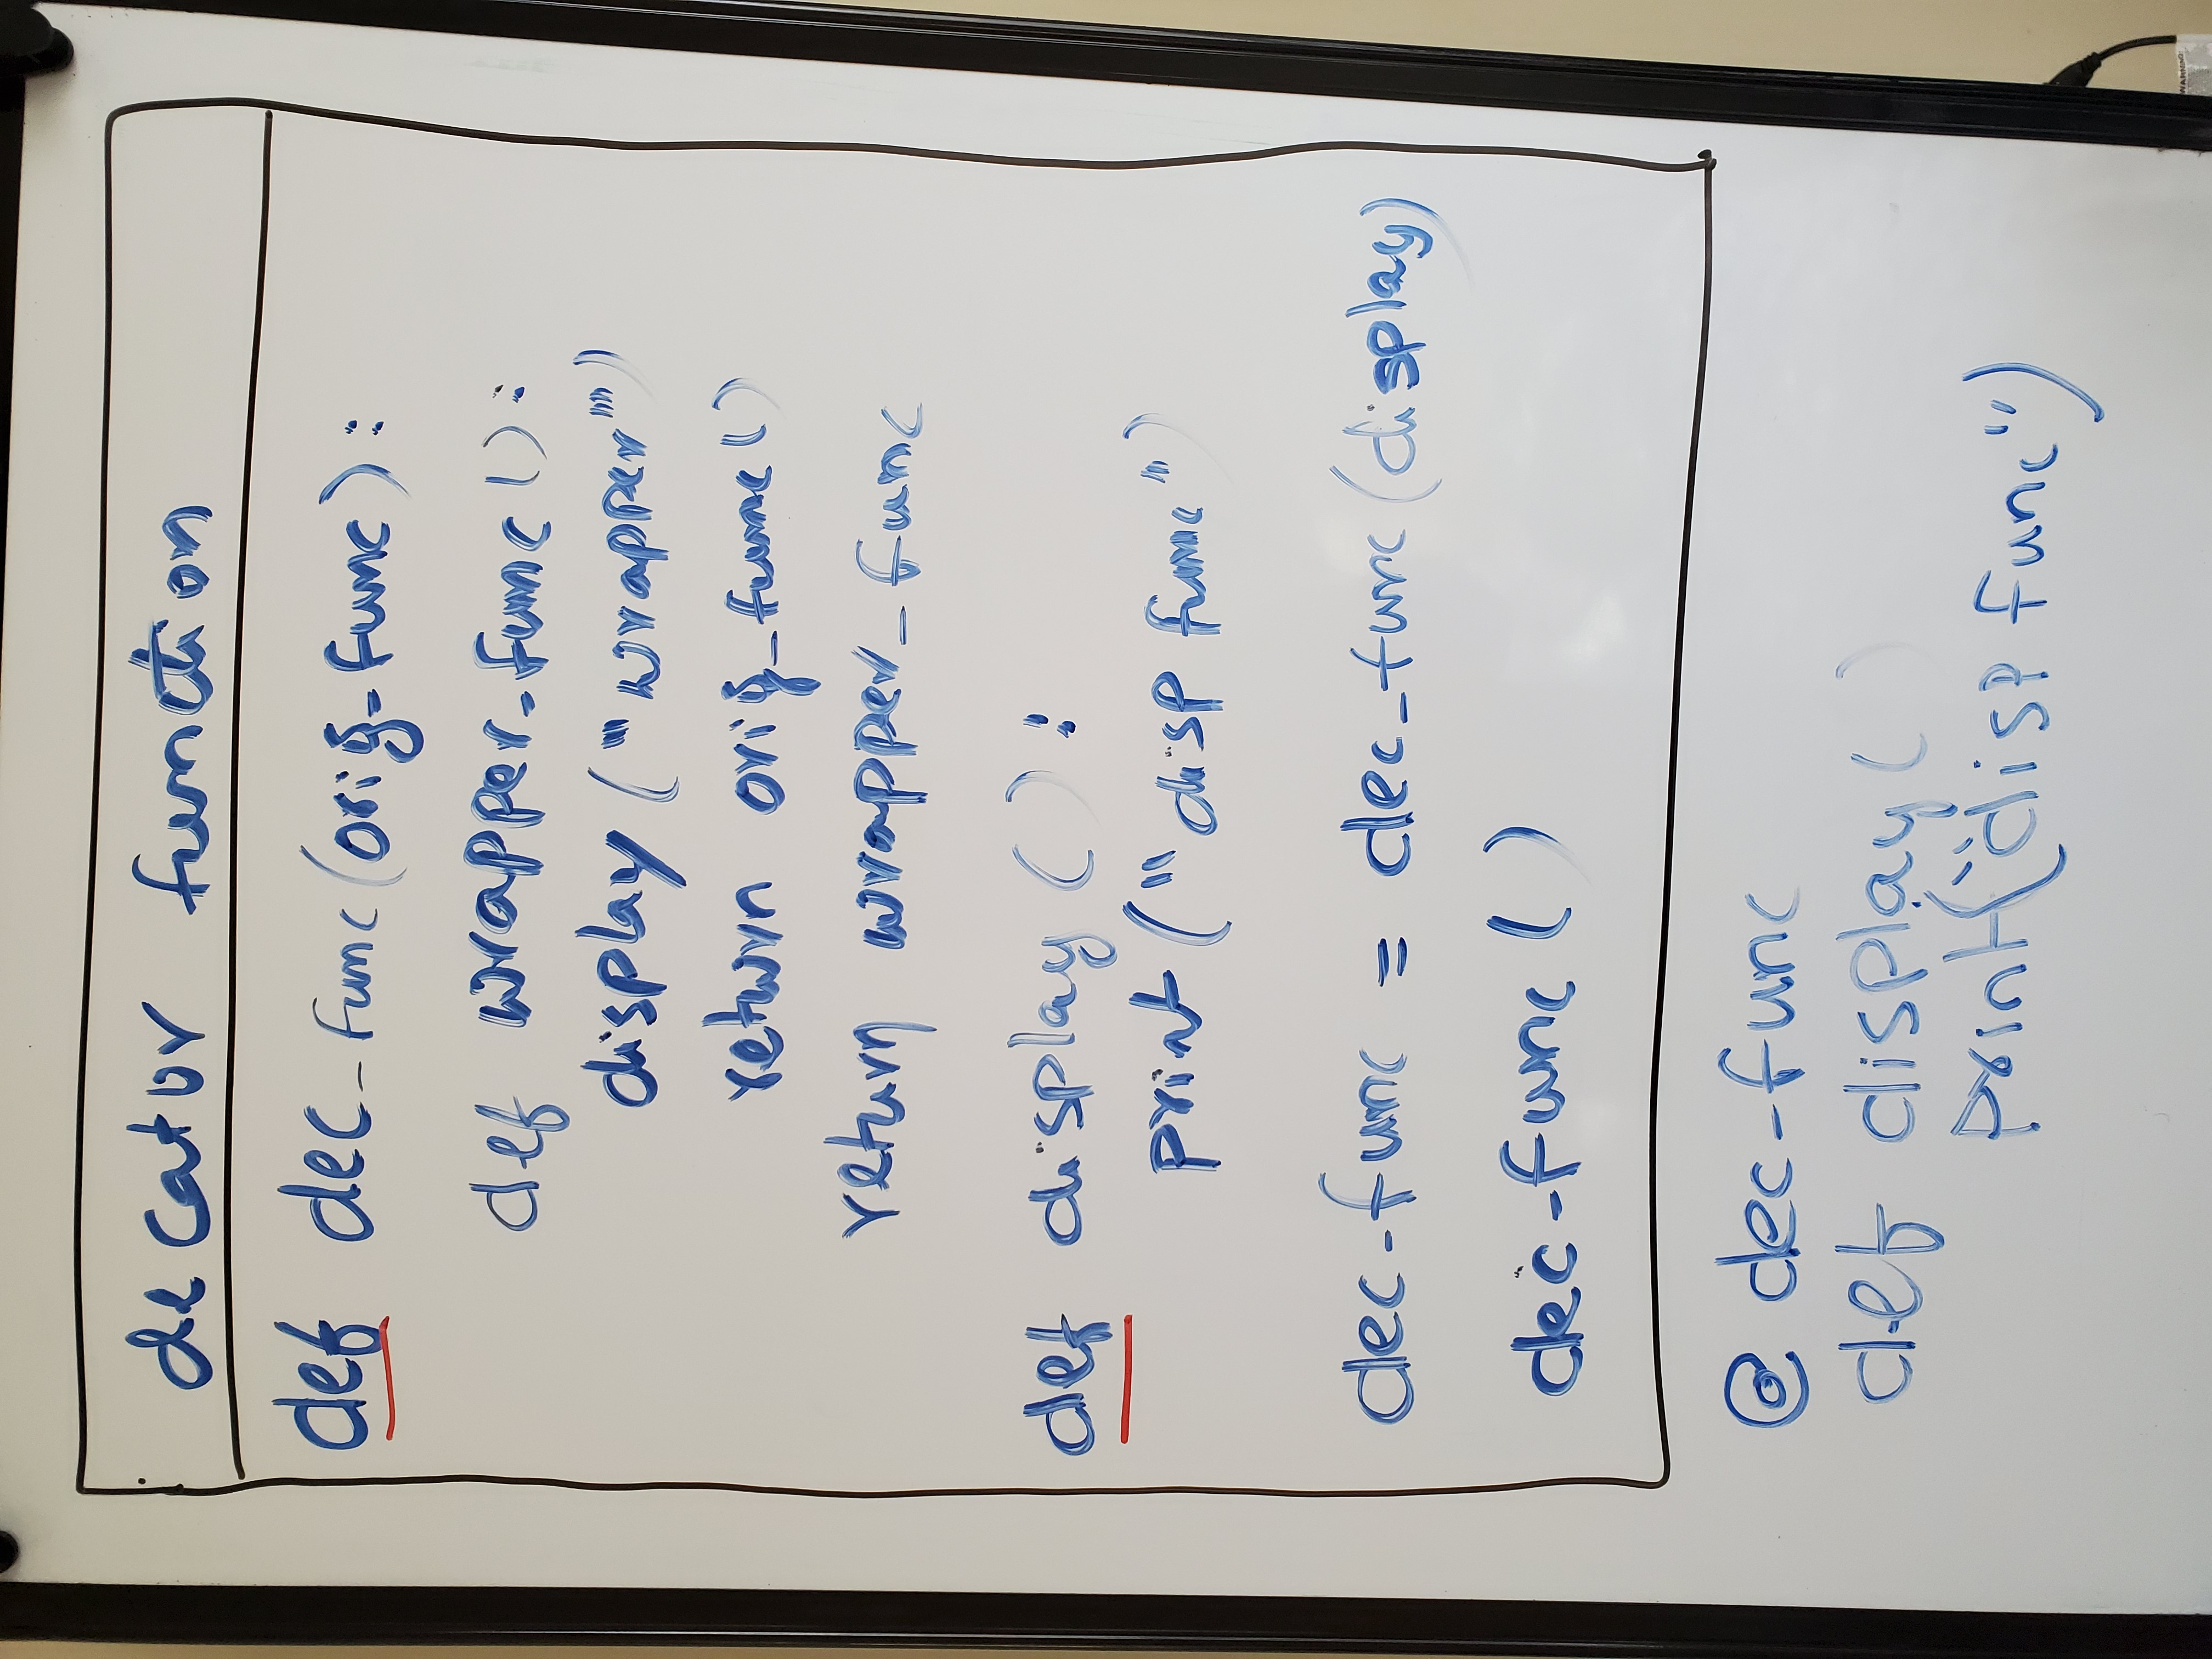 decator function
def dec_func(orig_func):
def wrapper_func():
display("'wrapper"')
return orig_func()
return wrapper_func
def display():
print("disp func")
dec-func = dec_func(display)
dec-func()
@ dec-func
def display()
print("disp func")
WARNING: